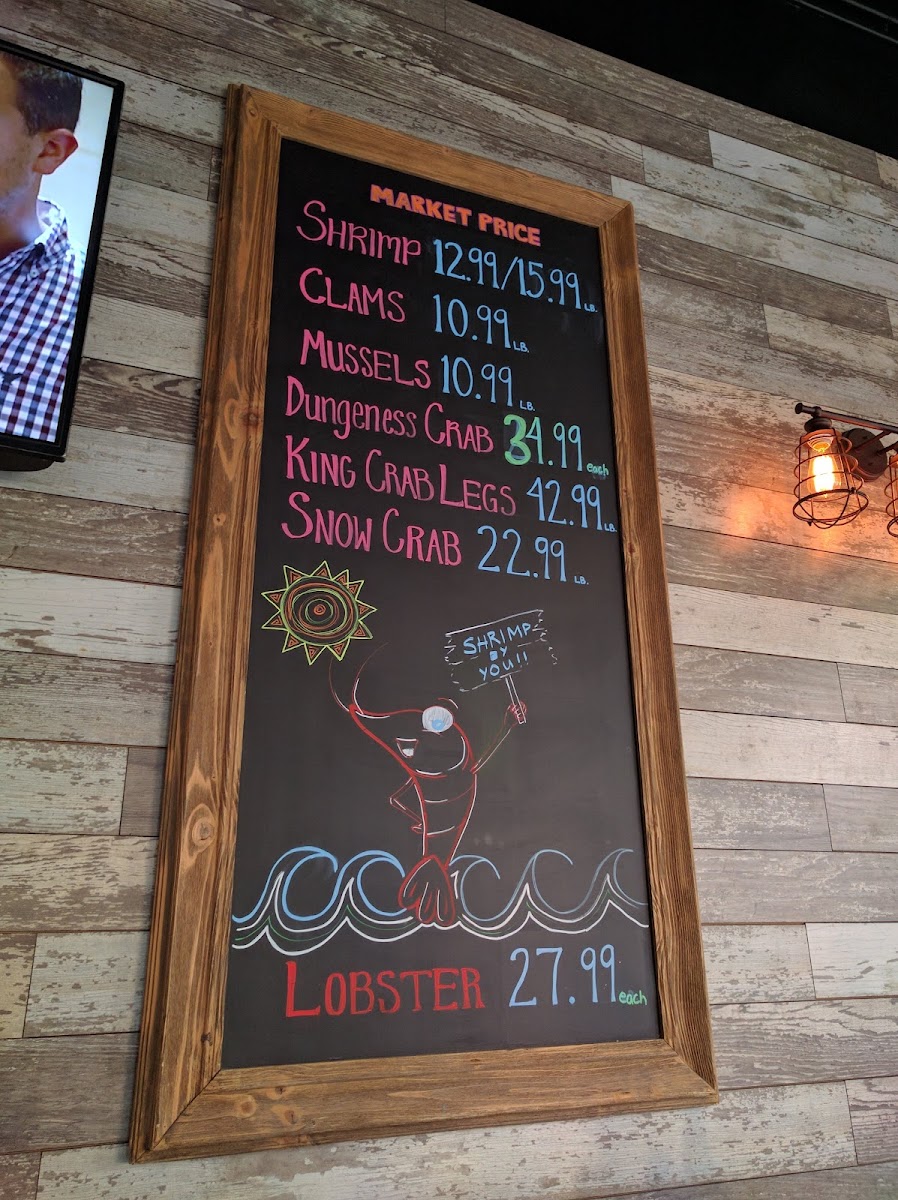 MARKET PRICE
SHRIMP 12.99/15.99 LB.
CLAMS 10.99 LB.
MUSSELS 10.99 LB.
DUNGENESS CRAB 34.99 each
KING CRAB LEGS 42.99 LB.
SNOW CRAB 22.99 LB.
SHRIMP
BY
YOU!!
LOBSTER 27.99 each